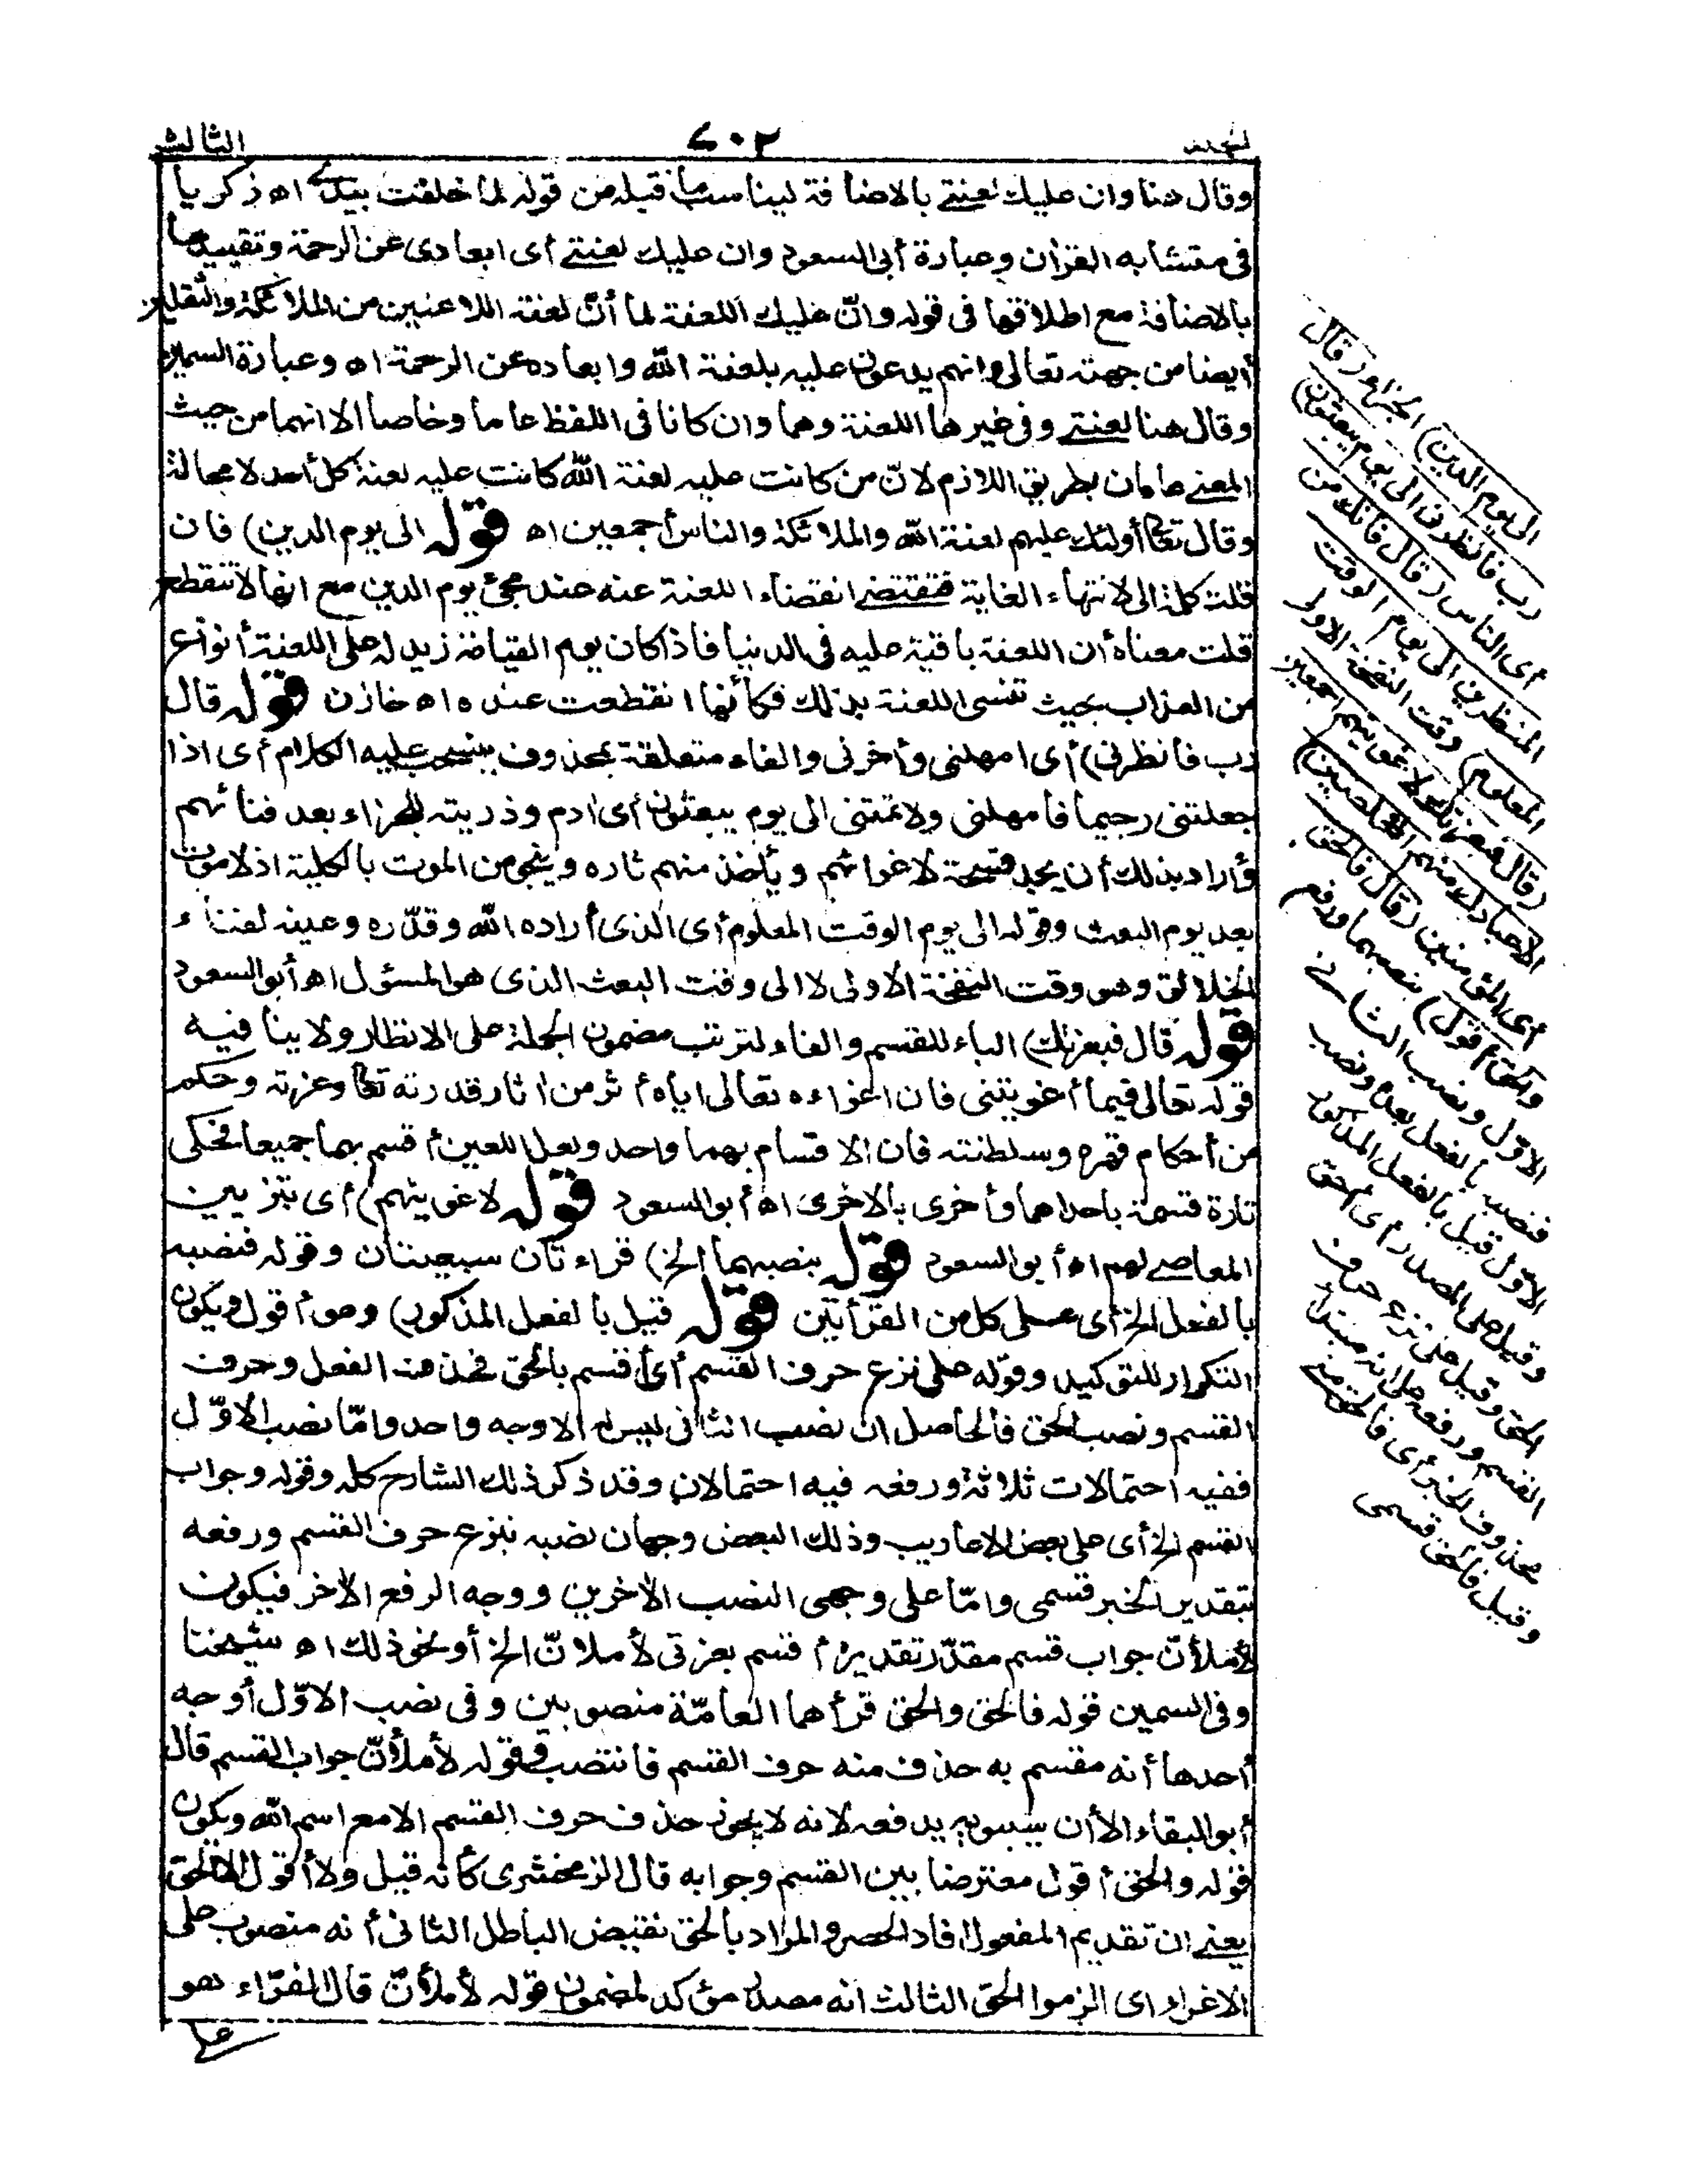 المجلد ٦٠٢ الثالث
وقال هنا وان عليك لعنتى بالاضافة ليناسب ما قبله من قوله لما خلقت بيدى اه زكريا
فى متشابه القرآن وعبارة أبى السعود وان عليك لعنتى أى ابعادى عن الرحمة وتقييدها
بالاضافة مع اطلاقها فى قوله وانّ عليك اللعنة لما أنّ لعنة اللاعنين من الملائكة والثقلين
أيضا من جهته تعالى وانهم يدعون عليه بلعنة الله وابعاده عن الرحمة اه وعبارة السمين
وقال هنا لعنتى وفى غيرها اللعنة وهما وان كانا فى اللفظ عاما وخاصا الا انهما من حيث
المعنى عامان بطريق اللازم لانّ من كانت عليه لعنة الله كانت عليه لعنة كل أحد لا محالة
وقال تعالى أولئك عليهم لعنة الله والملائكة والناس أجمعين اه قوله الى يوم الدين) فان
قلت كلمة الى لانتهاء الغاية فتقتضى انقضاء اللعنة عنه عند مجئ يوم الدين مع انها لا تنقطع
قلت معناه أن اللعنة باقية عليه فى الدنيا فاذا كان يوم القيامة زيد له على اللعنة أنواع
من العذاب بحيث تنسى اللعنة بذلك فكأنها انقطعت عنده اه خازن قوله قال
رب فأنظرنى) أى امهلنى وأخرنى والفاء متعلقة بمحذوف ينسحب عليه الكلام أى اذا
جعلتنى رجيما فأمهلنى ولا تمتنى الى يوم يبعثون أى آدم وذريته للجزاء بعد فنائهم
وأراد بذلك أن يجد فسحة لاغوائهم ويأخذ منهم ثاره وينجى من الموت بالكلية اذ لا موت
بعد يوم البعث وقوله الى يوم الوقت المعلوم أى الذى أراده الله وقدّره وعينه لفناء
الخلائق وهو وقت النفخة الاولى لا الى وقت البعث الذى هو المسؤل اه أبو السعود
قوله قال فبعزتك) الباء للقسم والفاء لترتب مضمون الجملة على الانظار ولا ينافيه
قوله تعالى فيما أغويتنى فان اغواءه تعالى اياه أثر من آثار قدرته تعالى وعزته وحكم
من أحكام قهره وسلطنته فان الاقسام بهما واحد ولعل اللعين أقسم بهما جميعا فحكى
تارة قسمه باحداهما وأخرى بالاخرى اه أبو السعود قوله لاغوينهم) أى بتزيين
المعاصى لهم اه أبو السعود قوله بنصبهما الخ) قراءتان سبعيتان وقوله فنصبه
بالفعل الخ أى على كل من القرأتين قوله قيل بالفعل المذكور) وهو أقول ويكون
التكرار للتوكيد وقوله على نزع حرف القسم أى أقسم بالحق فحذف الفعل وحرف
القسم ونصب الحق فالحاصل ان نصب الثانى ليس له الا وجه واحد وامّا نصب الاوّل
ففيه احتمالات ثلاثة ورفعه فيه احتمالان وقد ذكر ذلك الشارح كله وقوله وجواب
القسم الخ أى على بعض الاعاريب وذلك البعض وجهان نصبه بنزع حرف القسم ورفعه
بتقدير الخبر قسمى وامّا على وجهى النصب الآخرين ووجه الرفع الآخر فيكون
لأملأنّ جواب قسم مقدّر تقديره أقسم بعزتى لأملانّ الخ أو نحو ذلك اه شيخنا
وفى السمين قوله فالحق والحق قرأهما العامّة منصوبين وفى نصب الاوّل أوجه
أحدها أنه مقسم به حذف منه حرف القسم فانتصب وقوله لأملأنّ جواب القسم قال
أبو البقاء الا أن سيبويه يدفعه لانه لا يجوز حذف حرف القسم الا مع اسم الله ويكون
قوله والحق أقول معترضا بين القسم وجوابه قال الزمخشرى كأنه قيل ولا أقول الا الحق
يعنى ان تقديم المفعول أفاد الحصر والمراد بالحق نقيض الباطل الثانى أنه منصوب على
الاغراء اى الزموا الحق الثالث أنه مصدر مؤكد لمضمون قوله لأملأنّ قال الفرّاء هو
على
الى يوم الدين) الجزاء (قال
رب فأنظرنى الى يوم يبعثون)
أى الناس (قال فانك من
المنظرين الى يوم الوقت
المعلوم) وقت النفخة الاولى
(قال فبعزتك لاغوينهم اجمعين
الا عبادك منهم المخلصين)
أى المؤمنين (قال فالحق
والحق أقول) بنصبهما ورفع
الاوّل ونصب الثانى
فنصبه بالفعل بعده ونصب
الاوّل قيل بالفعل المذكور
وقيل على المصدر أى أحق
الحق وقيل على نزع حرف
القسم ورفعه على انه مبتدأ
محذوف الخبر أى فالحق منى
وقيل فالحق قسمى